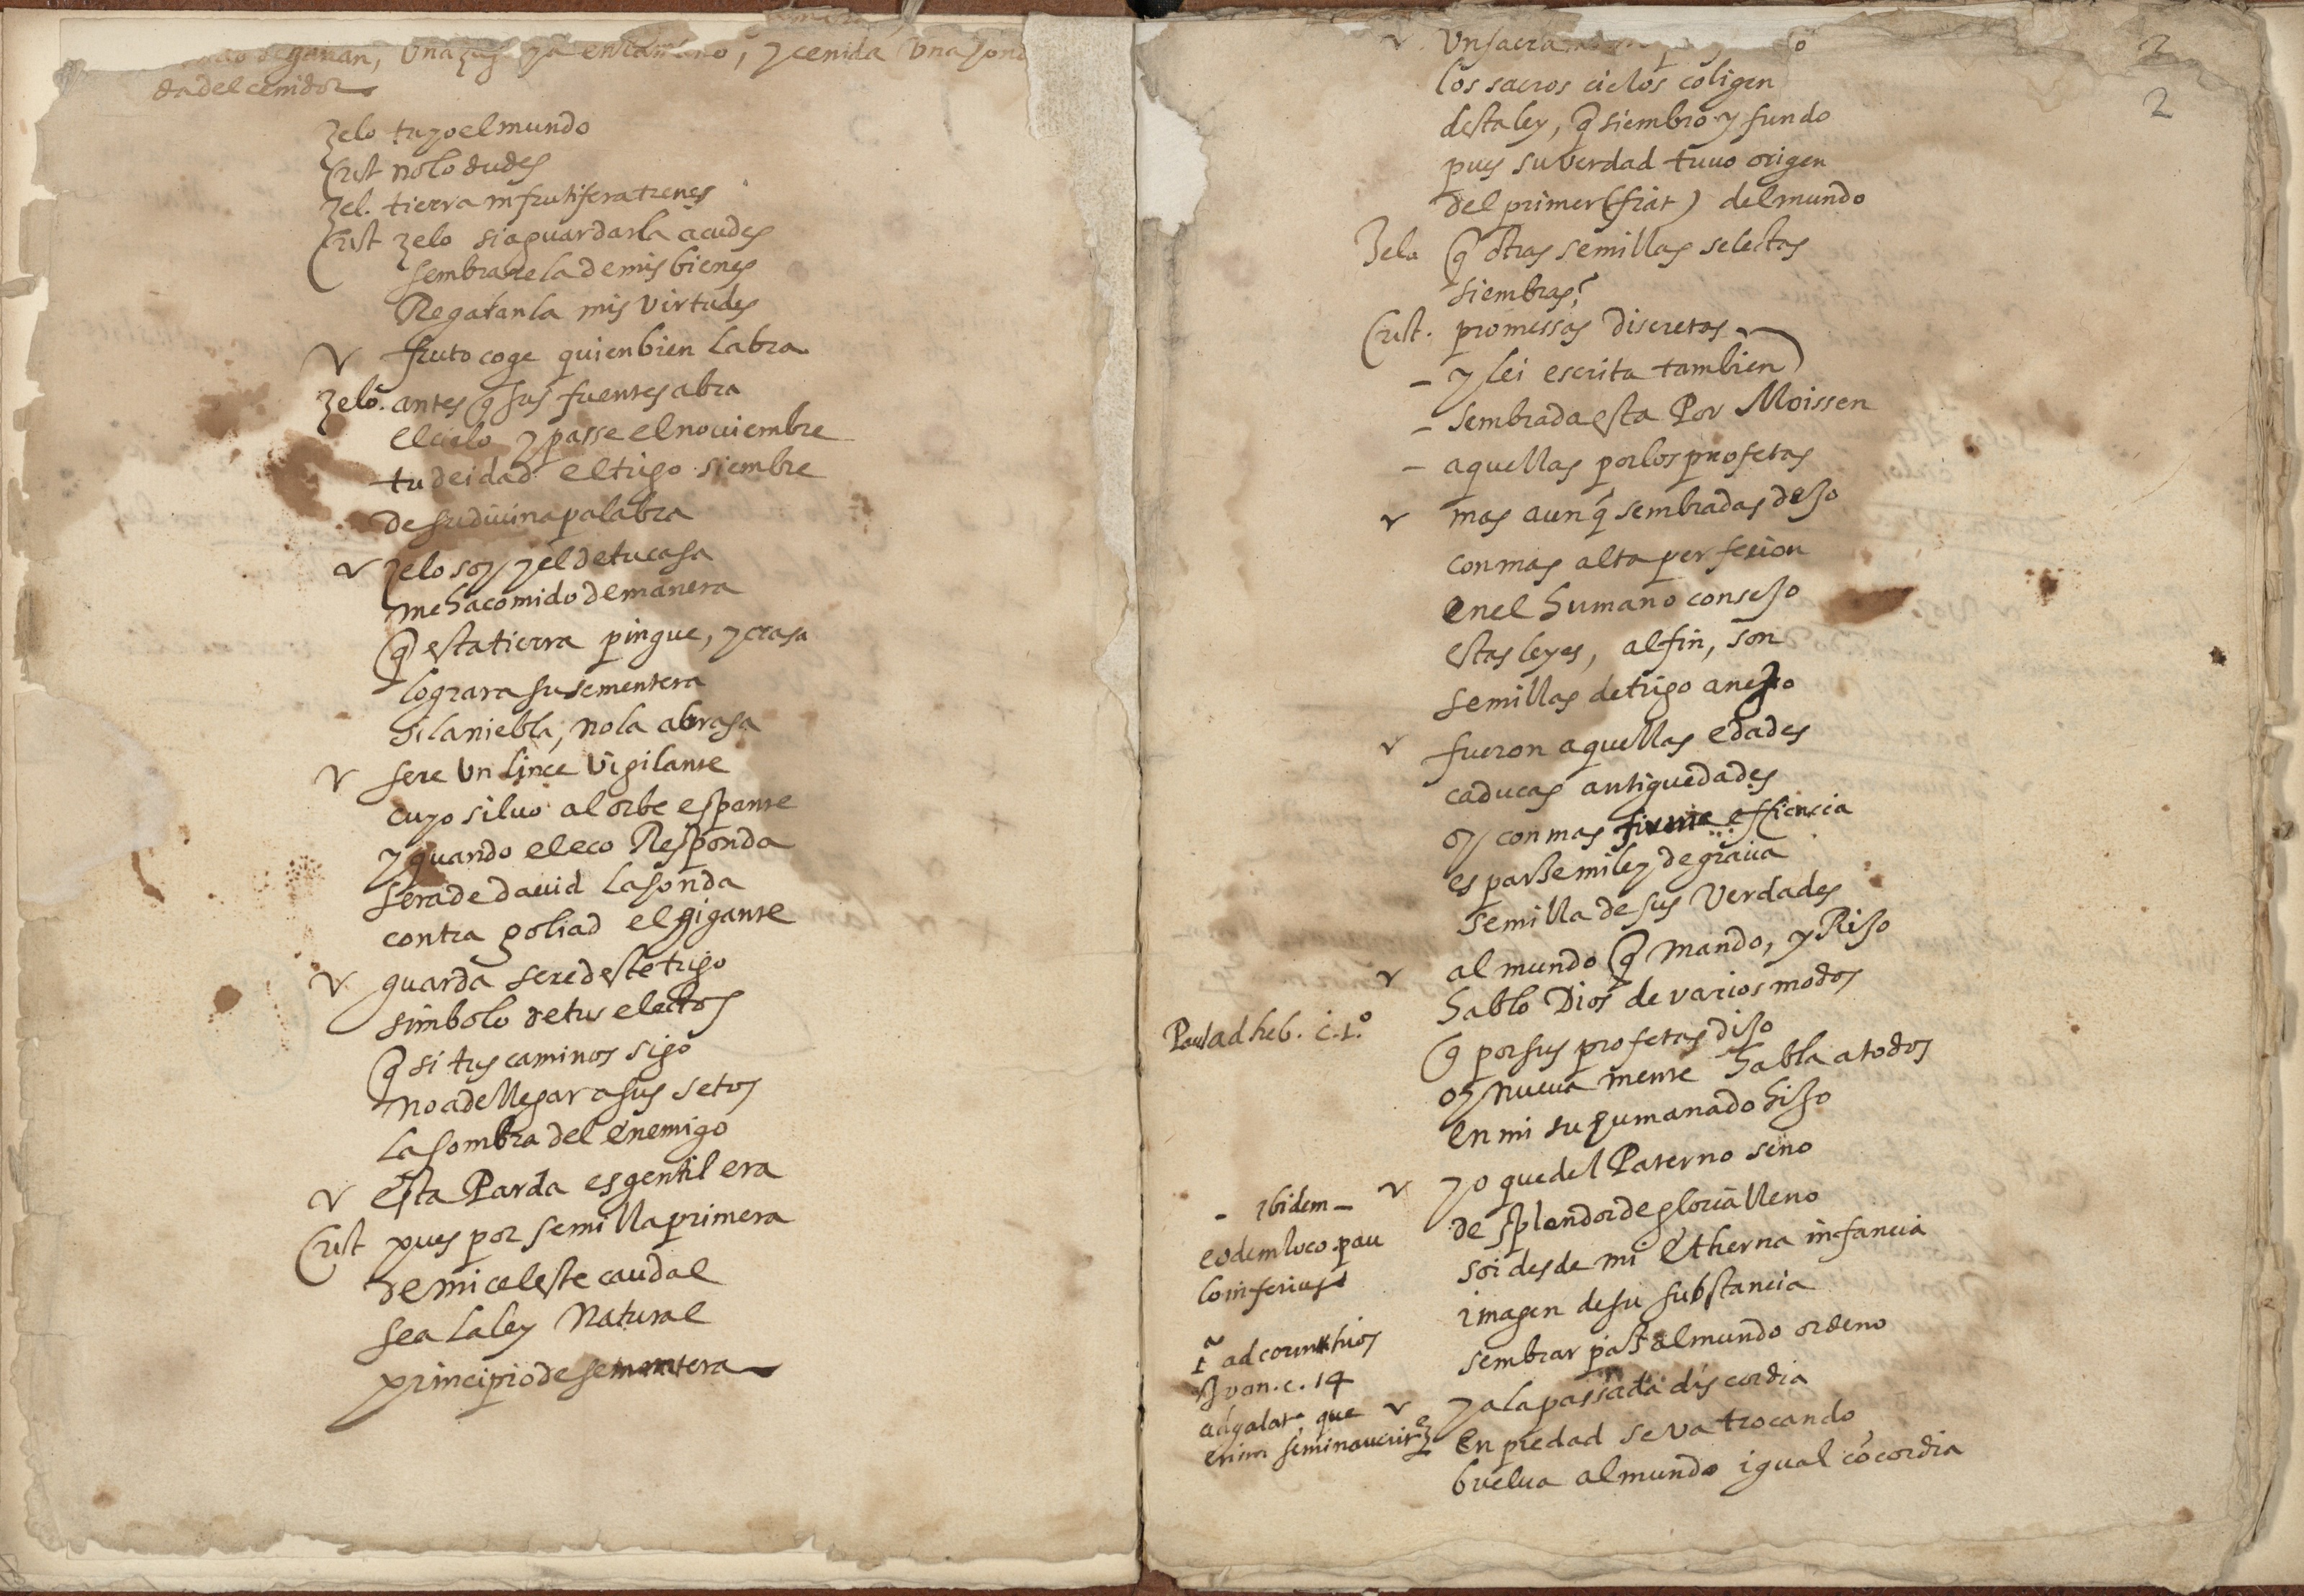 de gañan, una y ceñida una
da del ceñidor
zelo tuyo el mundo
Crist no lo dudes
zel. tierra infrutifera tienes
Crist zelo si a guardarla acudes
sembrarela de mis bienes
Regaranla mis virtudes
v fruto coge quien bien labra
zelo. antes q̃ sus fuentes abra
el cielo y passe el nouiembre
tu deidad el trigo siembre
de su diuina palabra
v zelo soy y el de tu casa
me ha comido de manera
q̃ esta tierra pingue, y crasa
lograra su sementera
si la niebla, no la abrasa
v sere un lince vigilante
cuyo siluo al orbe espante
y quando el eco Responda
sera de dauid la honda
contra goliad el gigante
v guarda sere deste trigo
simbolo de tus electos
q̃ si tus caminos sigo
no a de llegar a sus setos
la sombra del enemigo
v esta Parda es gentil era
Crist pues por semilla primera
de mi celeste caudal
sea la ley Natural
principio de sementera
2
2
v Un sacra
los sacros cielos coligen
desta ley, q̃ siembro y fundo
pues su verdad tuuo origen
del primer (fiat) del mundo
Zelo q̃ otras semillas selectas
siembras?
Crist. promessas discretas
- y lei escrita tambien
- sembrada esta Por Moissen
- aquellas por los profetas
v mas aunq̃ sembradas dejo
con mas alta perfecion
en el humano consejo
estas leyes, al fin, son
semillas de trigo anejo
v fueron aquellas edades
caducas antiguedades
oy con mas efficacia
esparse mi ley de gracia
semilla de sus verdades
v al mundo q̃ mando, y Rijo
hablo Dios de varios modos
Paul ad heb. c. 1.º
q̃ por sus profetas dijo
oy nueua mente habla a todos
en mi su humanado hijo
- ibidem - v yo que del Paterno seno
eodem loco pau
lo inferius
de splendor de gloria lleno
soi desde mi etherna infancia
imagen de su substancia
sembrar paz al mundo ordeno
1ª ad corinthios
Juan. c. 14
ad galat. que
enim seminauerit
v y a la passada discordia
en piedad se va trocando
buelua al mundo igual cõcordia